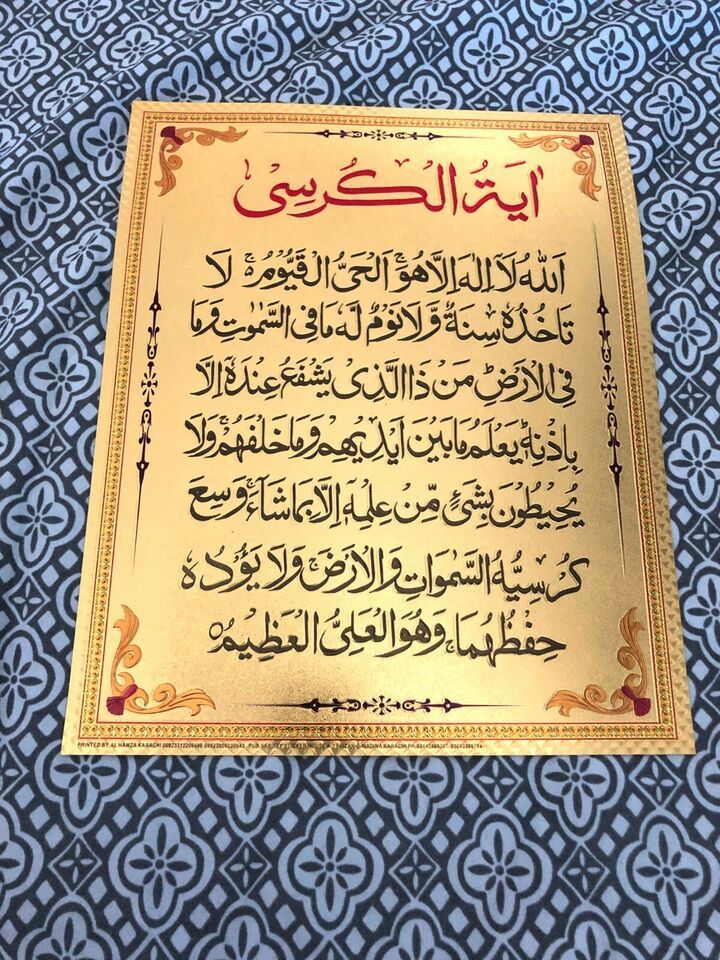 اٰيَةُ الْكُرْسِى
اَللّٰهُ لَآ اِلٰهَ اِلَّا هُوَۚ اَلْحَىُّ الْقَيُّوْمُ ۚ لَا
تَاْخُذُهٗ سِنَةٌ وَّلَا نَوْمٌ لَّهٗ مَا فِى السَّمٰوٰتِ وَمَا
فِى الْاَرْضِؕ مَنْ ذَا الَّذِىْ يَشْفَعُ عِنْدَهٗ اِلَّا
بِاِذْنِهٖؕ يَعْلَمُ مَا بَيْنَ اَيْدِيْهِمْ وَمَا خَلْفَهُمْۚ وَلَا
يُحِيْطُوْنَ بِشَىْءٍ مِّنْ عِلْمِهٖ اِلَّا بِمَا شَآءَۚ وَسِعَ
كُرْسِيُّهُ السَّمٰوَاتِ وَالْاَرْضَۚ وَلَا يَؤُدُهٗ
حِفْظُهُمَاۚ وَهُوَ الْعَلِىُّ الْعَظِيْمُ
PRINTED BY: AL HAMZA KARACHI